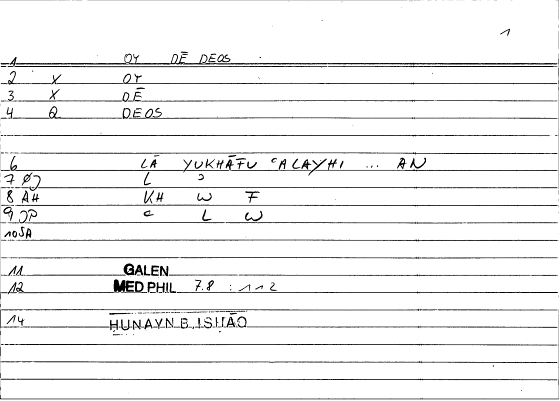 1
1 OY DĒ DEOS
2 X OY
3 X DĒ
4 Q DEOS
6 LĀ YUKHĀFU ʿALAYHI ... AN
7 ØJ L ʾ
8 AH KH W F
9 JP ʿ L W
10 SA
11 GALEN
12 MED PHIL 7.8 : 112
14 ḤUNAYN B. ISḤĀQ